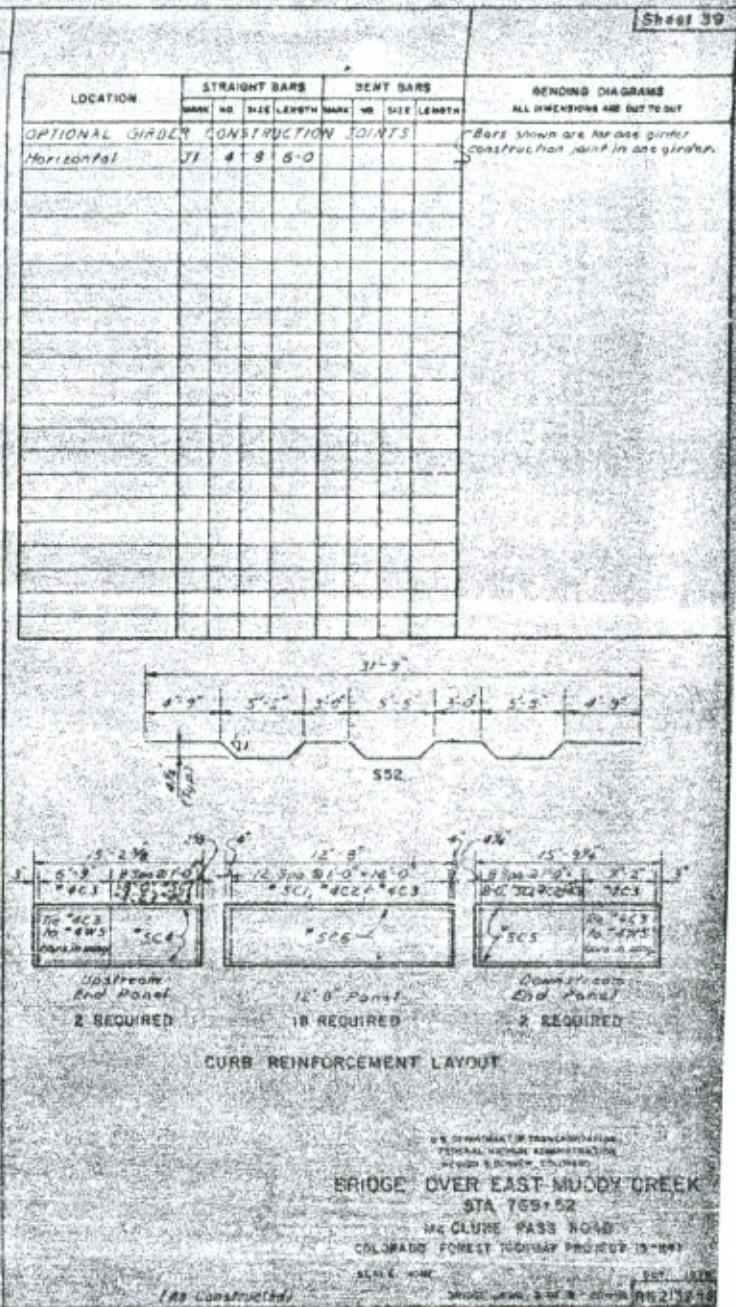 Sheet 39
LOCATION
STRAIGHT BARS
BENT BARS
BENDING DIAGRAMS
ALL DIMENSIONS ARE OUT TO OUT
MARK NO. SIZE LENGTH MARK NO. SIZE LENGTH
OPTIONAL GIRDER CONSTRUCTION JOINTS
Bars shown are for one girder
construction joint in one girder.
Horizontal J1 4 8 6-0
31'-9"
4'-9" 3'-0" 5'-5" 3'-0" 5'-5" 4'-9"
(Typ.)
S52
15'-2 12'-8" 15'-9
3" 6'-9" 8 Spa @ 1'-0" 4" 12 Spa @ 1'-0" = 12'-0" 4" 8 Spa @ 1'-0" 7'-2" 3"
#4C3 #5C1, #4C2 & #4C3 #4C3
Tie #4C3
to #4W5
#5C4
#5C6
#5C5
Tie #4C3
to #4W5
Upstream
End Panel
2 REQUIRED
12'-8" Panel
18 REQUIRED
Downstream
End Panel
2 REQUIRED
CURB REINFORCEMENT LAYOUT
U.S. DEPARTMENT OF TRANSPORTATION
FEDERAL HIGHWAY ADMINISTRATION
REGION 8 DENVER, COLORADO
BRIDGE OVER EAST MUDDY CREEK
STA. 769+52
McCLURE PASS ROAD
COLORADO FOREST HIGHWAY PROJECT
SCALE NONE
(As Constructed)